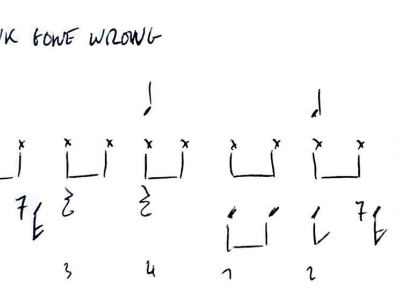 GONE WRONG
3 4 1 2